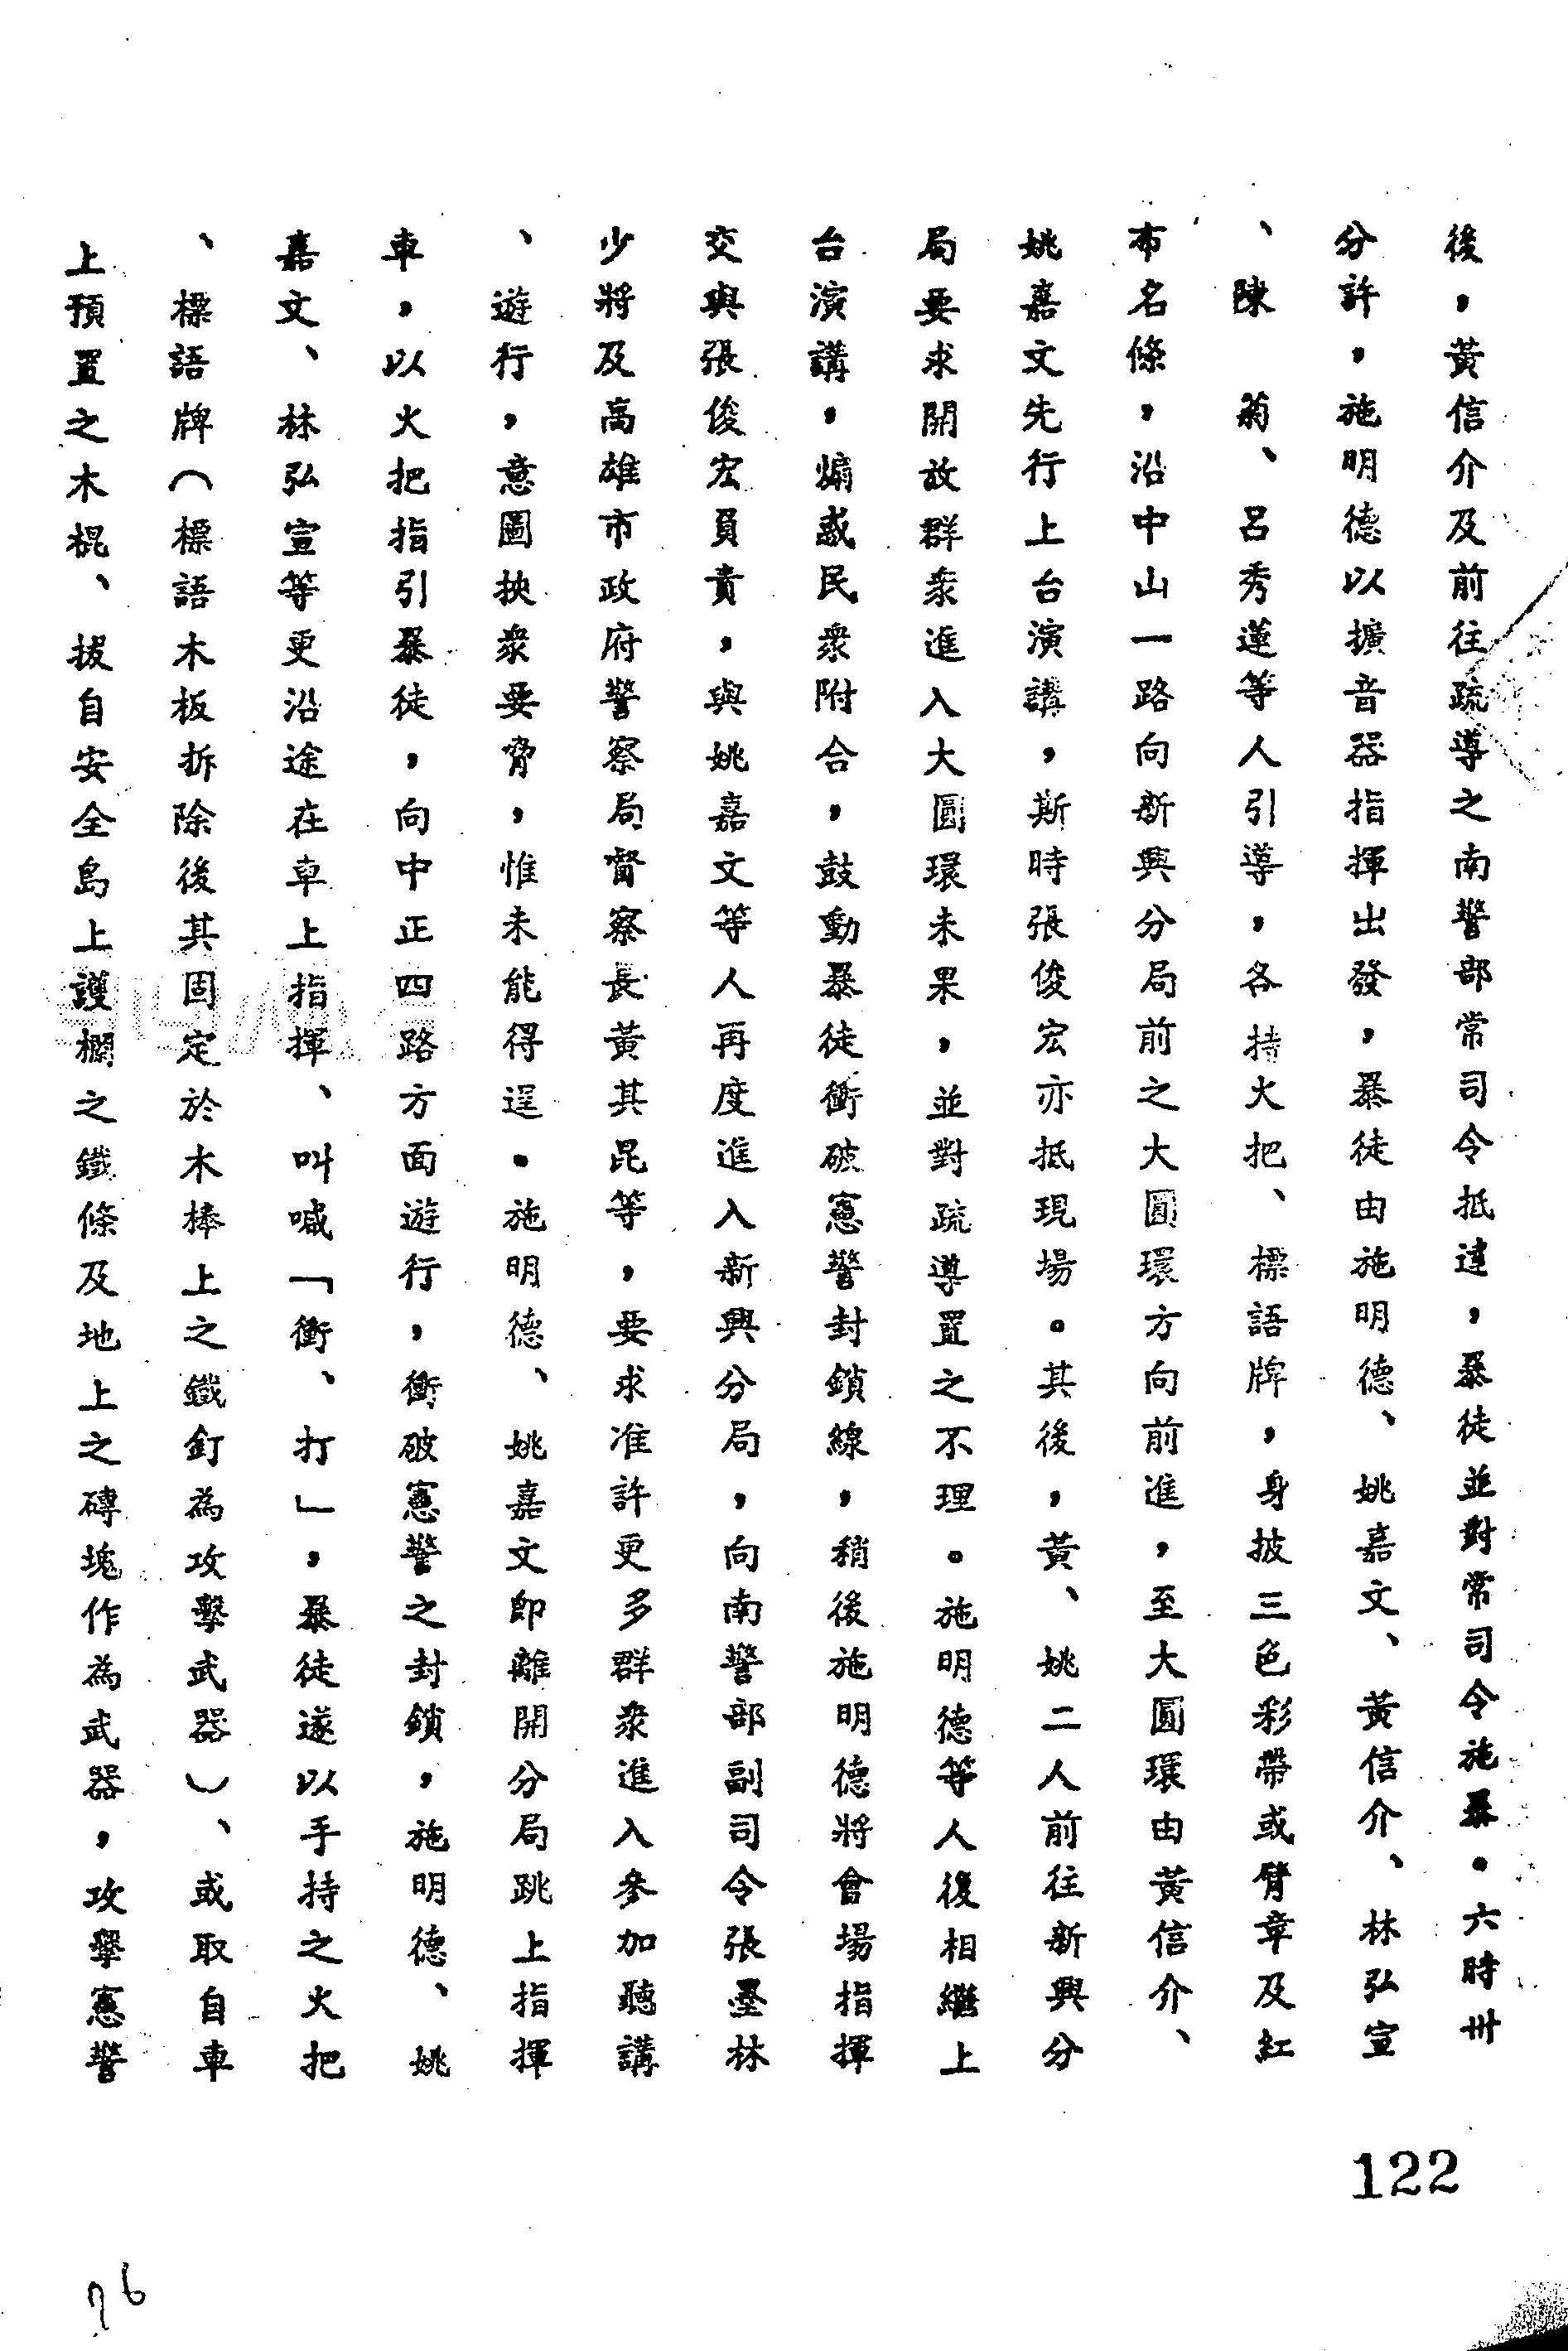 後，黃信介及前往疏導之南警部常司令抵達，暴徒並對常司令施暴。六時卅
分許，施明德以擴音器指揮出發，暴徒由施明德、姚嘉文、黃信介、林弘宣
、陳　菊、呂秀蓮等人引導，各持火把、標語牌，身披三色彩帶或臂章及紅
布名條，沿中山一路向新興分局前之大圓環方向前進，至大圓環由黃信介、
姚嘉文先行上台演講，斯時張俊宏亦抵現場。其後，黃、姚二人前往新興分
局要求開放群衆進入大圓環未果，並對疏導置之不理。施明德等人後相繼上
台演講，煽惑民衆附合，鼓動暴徒衝破憲警封鎖線，稍後施明德將會場指揮
交與張俊宏負責，與姚嘉文等人再度進入新興分局，向南警部副司令張墨林
少將及高雄市政府警察局督察長黃其昆等，要求准許更多群衆進入參加聽講
、遊行，意圖挾衆要脅，惟未能得逞。施明德、姚嘉文即離開分局跳上指揮
車，以火把指引暴徒，向中正四路方面遊行，衝破憲警之封鎖，施明德、姚
嘉文、林弘宣等更沿途在車上指揮、叫喊「衝、打」，暴徒遂以手持之火把
、標語牌（標語木板拆除後其固定於木棒上之鐵釘為攻擊武器）、或取自車
上預置之木棍、拔自安全島上護欄之鐵條及地上之磚塊作為武器，攻擊憲警
122
76